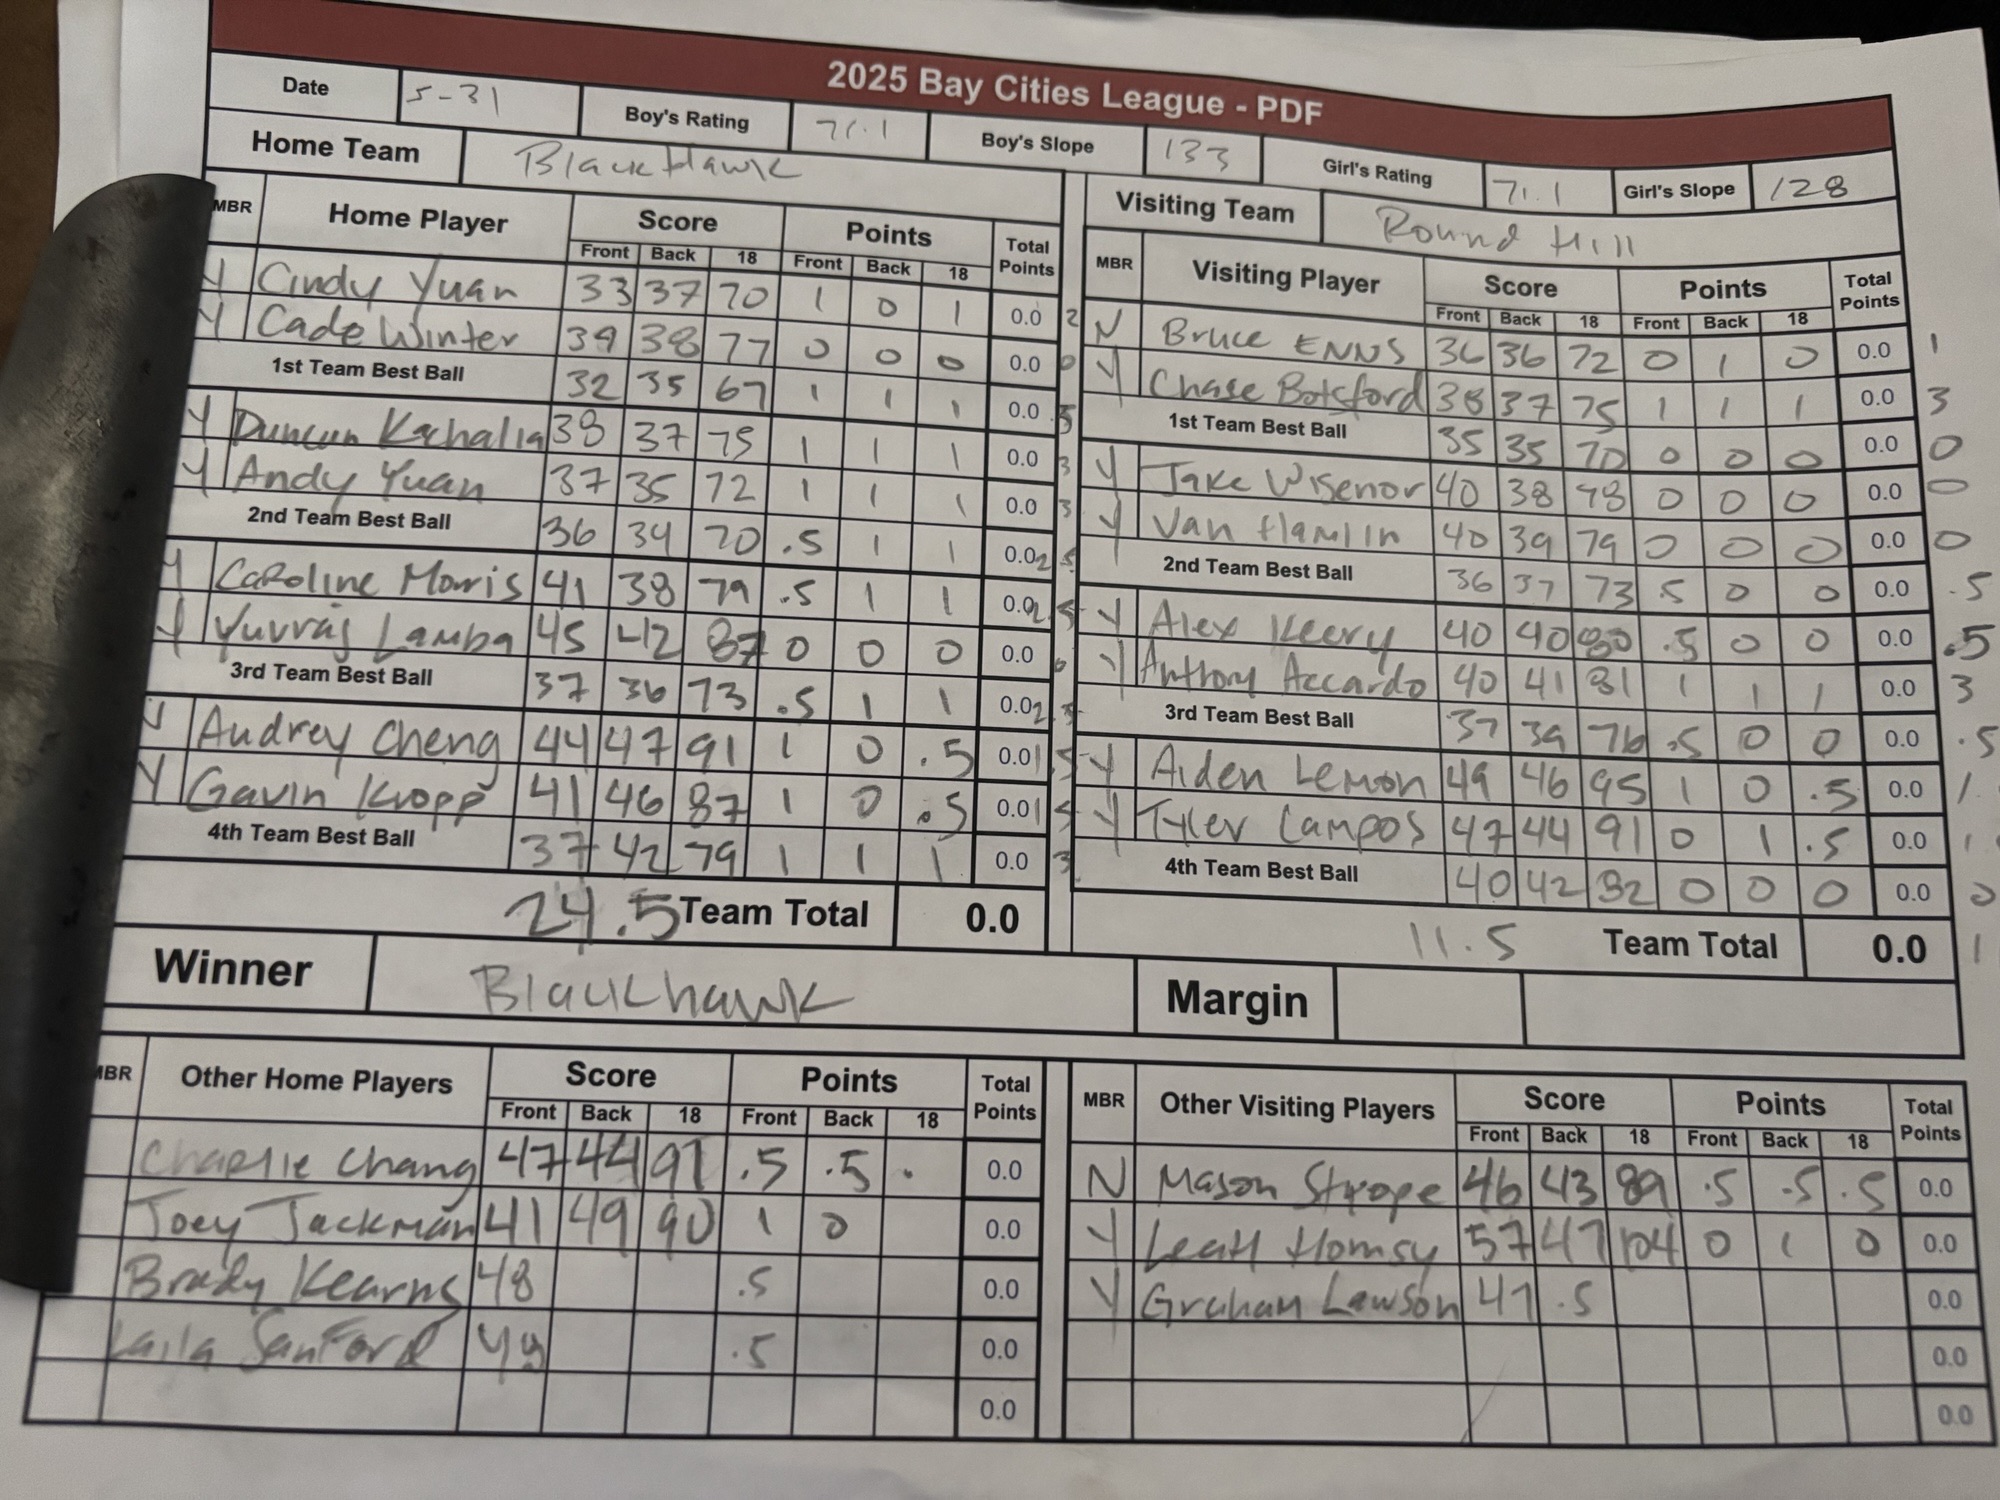 2025 Bay Cities League - PDF
Date 5-31 Boy's Rating 71.1 Boy's Slope 133 Girl's Rating 71.1 Girl's Slope 128
Home Team BlackHawk
Visiting Team Round Hill
MBR Home Player Score Points Total Points
Front Back 18 Front Back 18
Y Cindy Yuan 33 37 70 1 0 1 0.0 2
Y Cade Winter 39 38 77 0 0 0 0.0 0
1st Team Best Ball 32 35 67 1 1 1 0.0
Y Duncan Kachalia 38 37 75 1 1 1 0.0 3
Y Andy Yuan 37 35 72 1 1 1 0.0 3
2nd Team Best Ball 36 34 70 .5 1 1 0.0 2.5
Y Caroline Morris 41 38 79 .5 1 1 0.0 2.5
Y Yuvraj Lamba 45 42 87 0 0 0 0.0 0
3rd Team Best Ball 37 36 73 .5 1 1 0.0 2.5
N Audrey Cheng 44 47 91 1 0 .5 0.0 1.5
Y Gavin Kropp 41 46 87 1 0 .5 0.0 1.5
4th Team Best Ball 37 42 79 1 1 1 0.0 3
24.5 Team Total 0.0
MBR Visiting Player Score Points Total Points
Front Back 18 Front Back 18
N Bruce ENNS 36 36 72 0 1 0 0.0 1
Y Chase Botsford 38 37 75 1 1 1 0.0 3
1st Team Best Ball 35 35 70 0 0 0 0.0 0
Y Jake Wisenor 40 38 78 0 0 0 0.0 0
Y Van Hamlin 40 39 79 0 0 0 0.0 0
2nd Team Best Ball 36 37 73 .5 0 0 0.0 .5
Y Alex Keery 40 40 80 .5 0 0 0.0 .5
Y Anthony Accardo 40 41 81 1 1 1 0.0 3
3rd Team Best Ball 37 39 76 .5 0 0 0.0 .5
Y Aiden Lemon 49 46 95 1 0 .5 0.0 1.
Y Tyler Campos 47 44 91 0 1 .5 0.0 1
4th Team Best Ball 40 42 82 0 0 0 0.0 0
11.5 Team Total 0.0 1
Winner Blackhawk Margin
MBR Other Home Players Score Points Total Points
Front Back 18 Front Back 18
Charlie Chang 47 44 91 .5 .5 . 0.0
Joey Jackman 41 49 90 1 0 0.0
Brady Kearns 48 .5 0.0
Laila Sanford .5 0.0
0.0
MBR Other Visiting Players Score Points Total Points
Front Back 18 Front Back 18
N Mason Strope 46 43 89 .5 .5 .5 0.0
Y Leah Homsy 57 47 104 0 1 0 0.0
Y Graham Lawson 47 .5 0.0
0.0
0.0